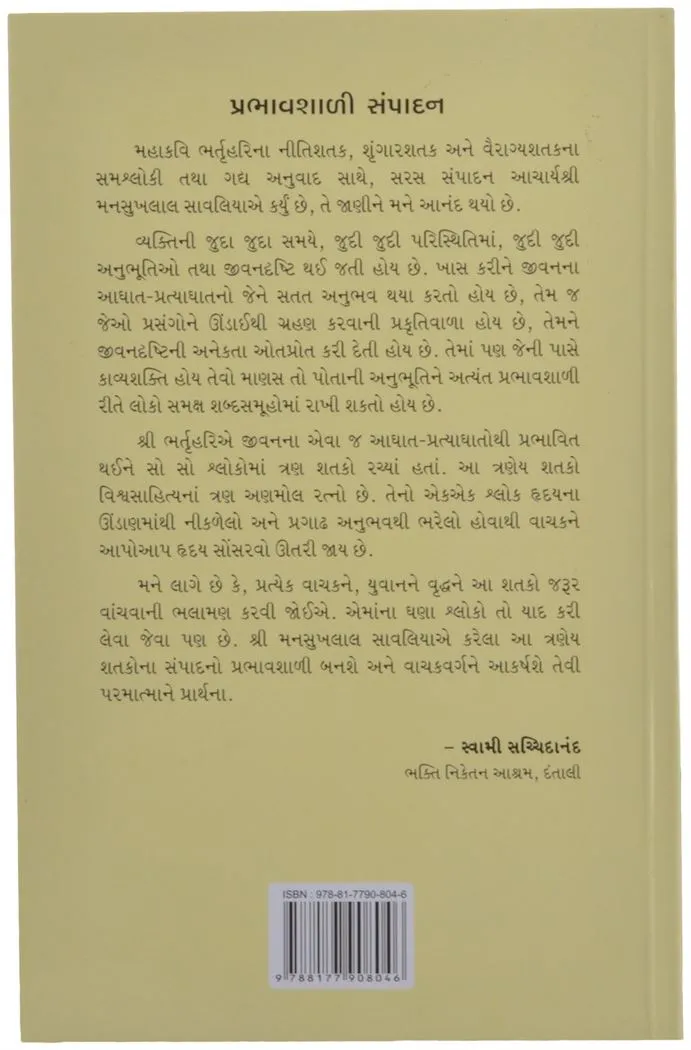 પ્રભાવશાળી સંપાદન
મહાકવિ ભર્તૃહરિના નીતિશતક, શૃંગારશતક અને વૈરાગ્યશતકના
સમશ્લોકી તથા ગદ્ય અનુવાદ સાથે, સરસ સંપાદન આચાર્યશ્રી
મનસુખલાલ સાવલિયાએ કર્યું છે, તે જાણીને મને આનંદ થયો છે.
વ્યક્તિની જુદા જુદા સમયે, જુદી જુદી પરિસ્થિતિમાં, જુદી જુદી
અનુભૂતિઓ તથા જીવનદષ્ટિ થઈ જતી હોય છે. ખાસ કરીને જીવનના
આઘાત-પ્રત્યાઘાતનો જેને સતત અનુભવ થયા કરતો હોય છે, તેમ જ
જેઓ પ્રસંગોને ઊંડાઈથી ગ્રહણ કરવાની પ્રકૃતિવાળા હોય છે, તેમને
જીવનદષ્ટિની અનેકતા ઓતપ્રોત કરી દેતી હોય છે. તેમાં પણ જેની પાસે
કાવ્યશક્તિ હોય તેવો માણસ તો પોતાની અનુભૂતિને અત્યંત પ્રભાવશાળી
રીતે લોકો સમક્ષ શબ્દસમૂહોમાં રાખી શકતો હોય છે.
શ્રી ભર્તૃહરિએ જીવનના એવા જ આઘાત-પ્રત્યાઘાતોથી પ્રભાવિત
થઈને સો સો શ્લોકોમાં ત્રણ શતકો રચ્યાં હતાં. આ ત્રણેય શતકો
વિશ્વસાહિત્યનાં ત્રણ અણમોલ રત્નો છે. તેનો એકએક શ્લોક હૃદયના
ઊંડાણમાંથી નીકળેલો અને પ્રગાઢ અનુભવથી ભરેલો હોવાથી વાચકને
આપોઆપ હૃદય સોંસરવો ઊતરી જાય છે.
મને લાગે છે કે, પ્રત્યેક વાચકને, યુવાનને વૃદ્ધને આ શતકો જરૂર
વાંચવાની ભલામણ કરવી જોઈએ. એમાંના ઘણા શ્લોકો તો યાદ કરી
લેવા જેવા પણ છે. શ્રી મનસુખલાલ સાવલિયાએ કરેલા આ ત્રણેય
શતકોના સંપાદનો પ્રભાવશાળી બનશે અને વાચકવર્ગને આકર્ષશે તેવી
પરમાત્માને પ્રાર્થના.
– સ્વામી સચ્ચિદાનંદ
ભક્તિ નિકેતન આશ્રમ, દંતાલી
ISBN : 978-81-7790-804-6
9 788177 908046